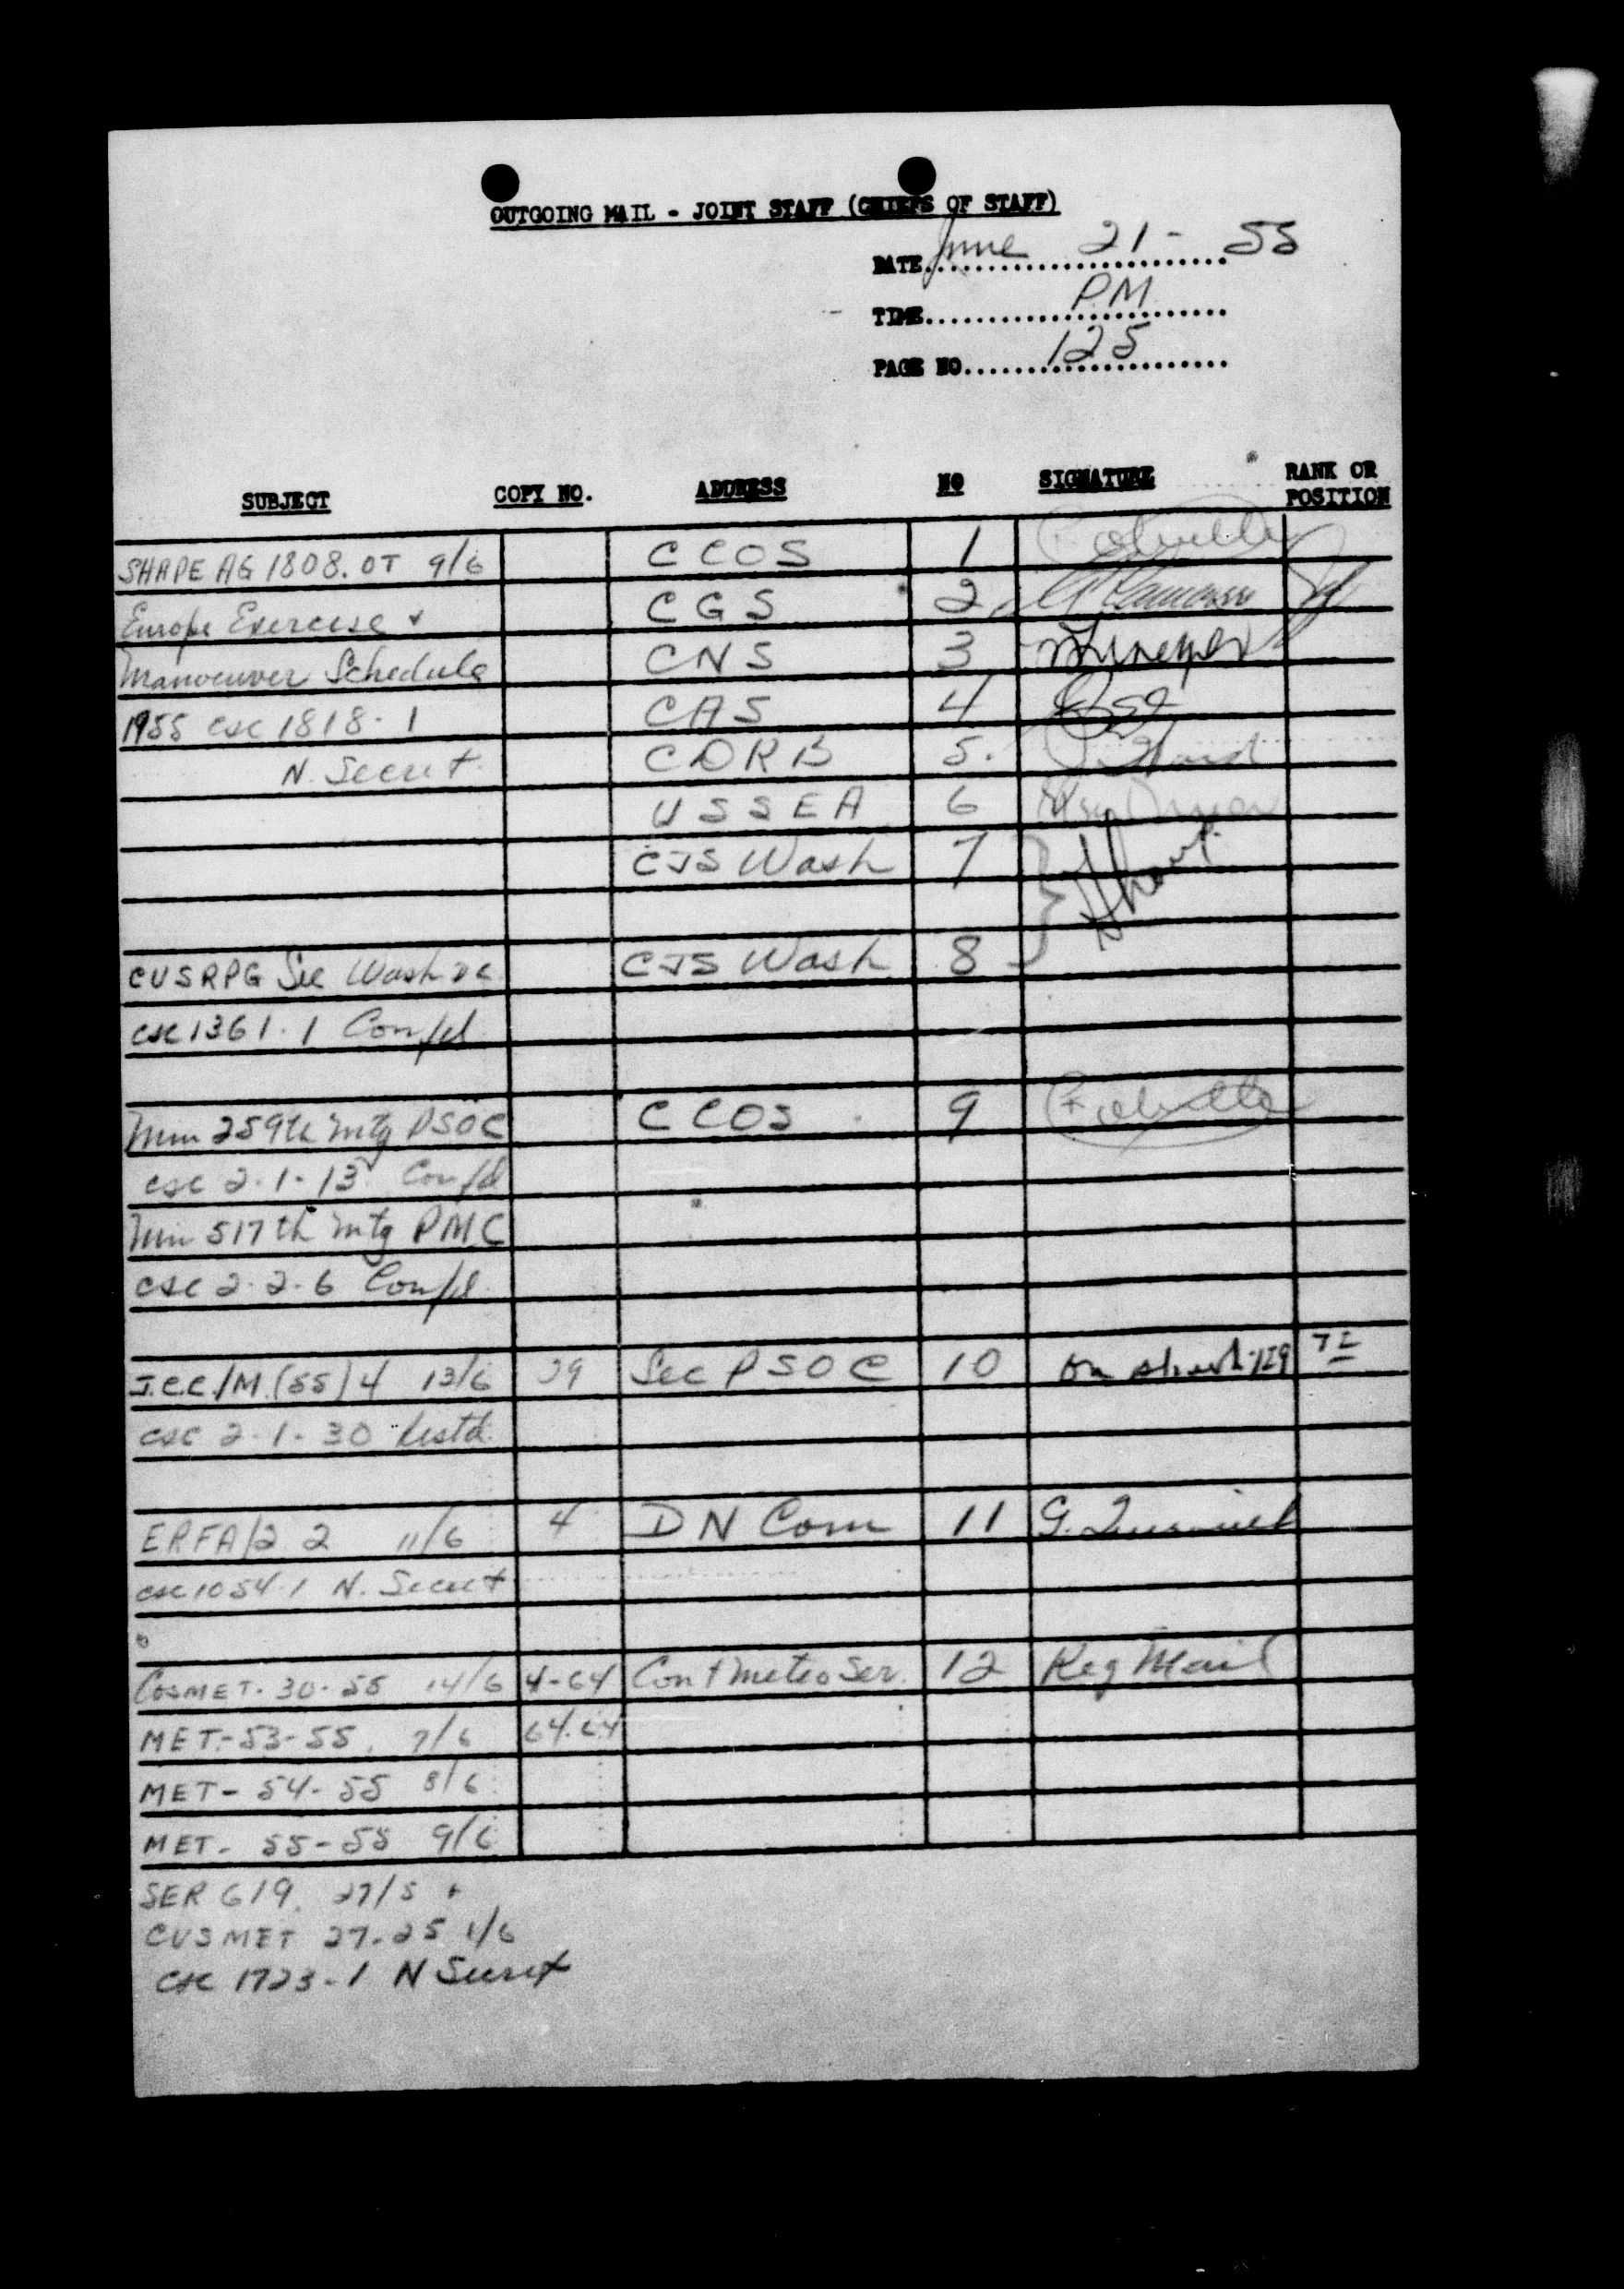 OUTGOING MAIL - JOINT STAFF (CHIEFS OF STAFF)
DATE June 21 - 55
TIME P.M.
PAGE NO. 125
SUBJECT COPY NO. ADDRESS NO SIGNATURE RANK OR POSITION
SHAPE AG 1808.OT 9/6 CCOS 1
Europe Exercise & CGS 2
Manoeuver Schedule CNS 3
1955 csc 1818-1 CAS 4
N. Secret CDRB 5.
USSEA 6
CJS Wash 7
CUSRPG Sec Wash DC CJS Wash 8
csc 1361.1 Confd
Min 259th mtg PSOC CCOS 9
csc 2.1.13 Confd
Min 517th mtg PMC
csc 2.2.6 Confd.
J.C.C./M.(55)4 13/6 39 Sec PSOC 10 on sheet 129
csc 2.1.30 Restd.
ERFA/2.2 11/6 4 DN Com 11 G.
csc 1054.1 N. Secret
COSMET-30-55 14/6 4-64 Cont Meteo Ser. 12 Reg Mail
MET-53-55. 7/6 64.64
MET-54-55 8/6
MET-55-55 9/6
SER 619. 27/5 +
CUSMET 27-25 1/6
csc 1723-1 N Secret